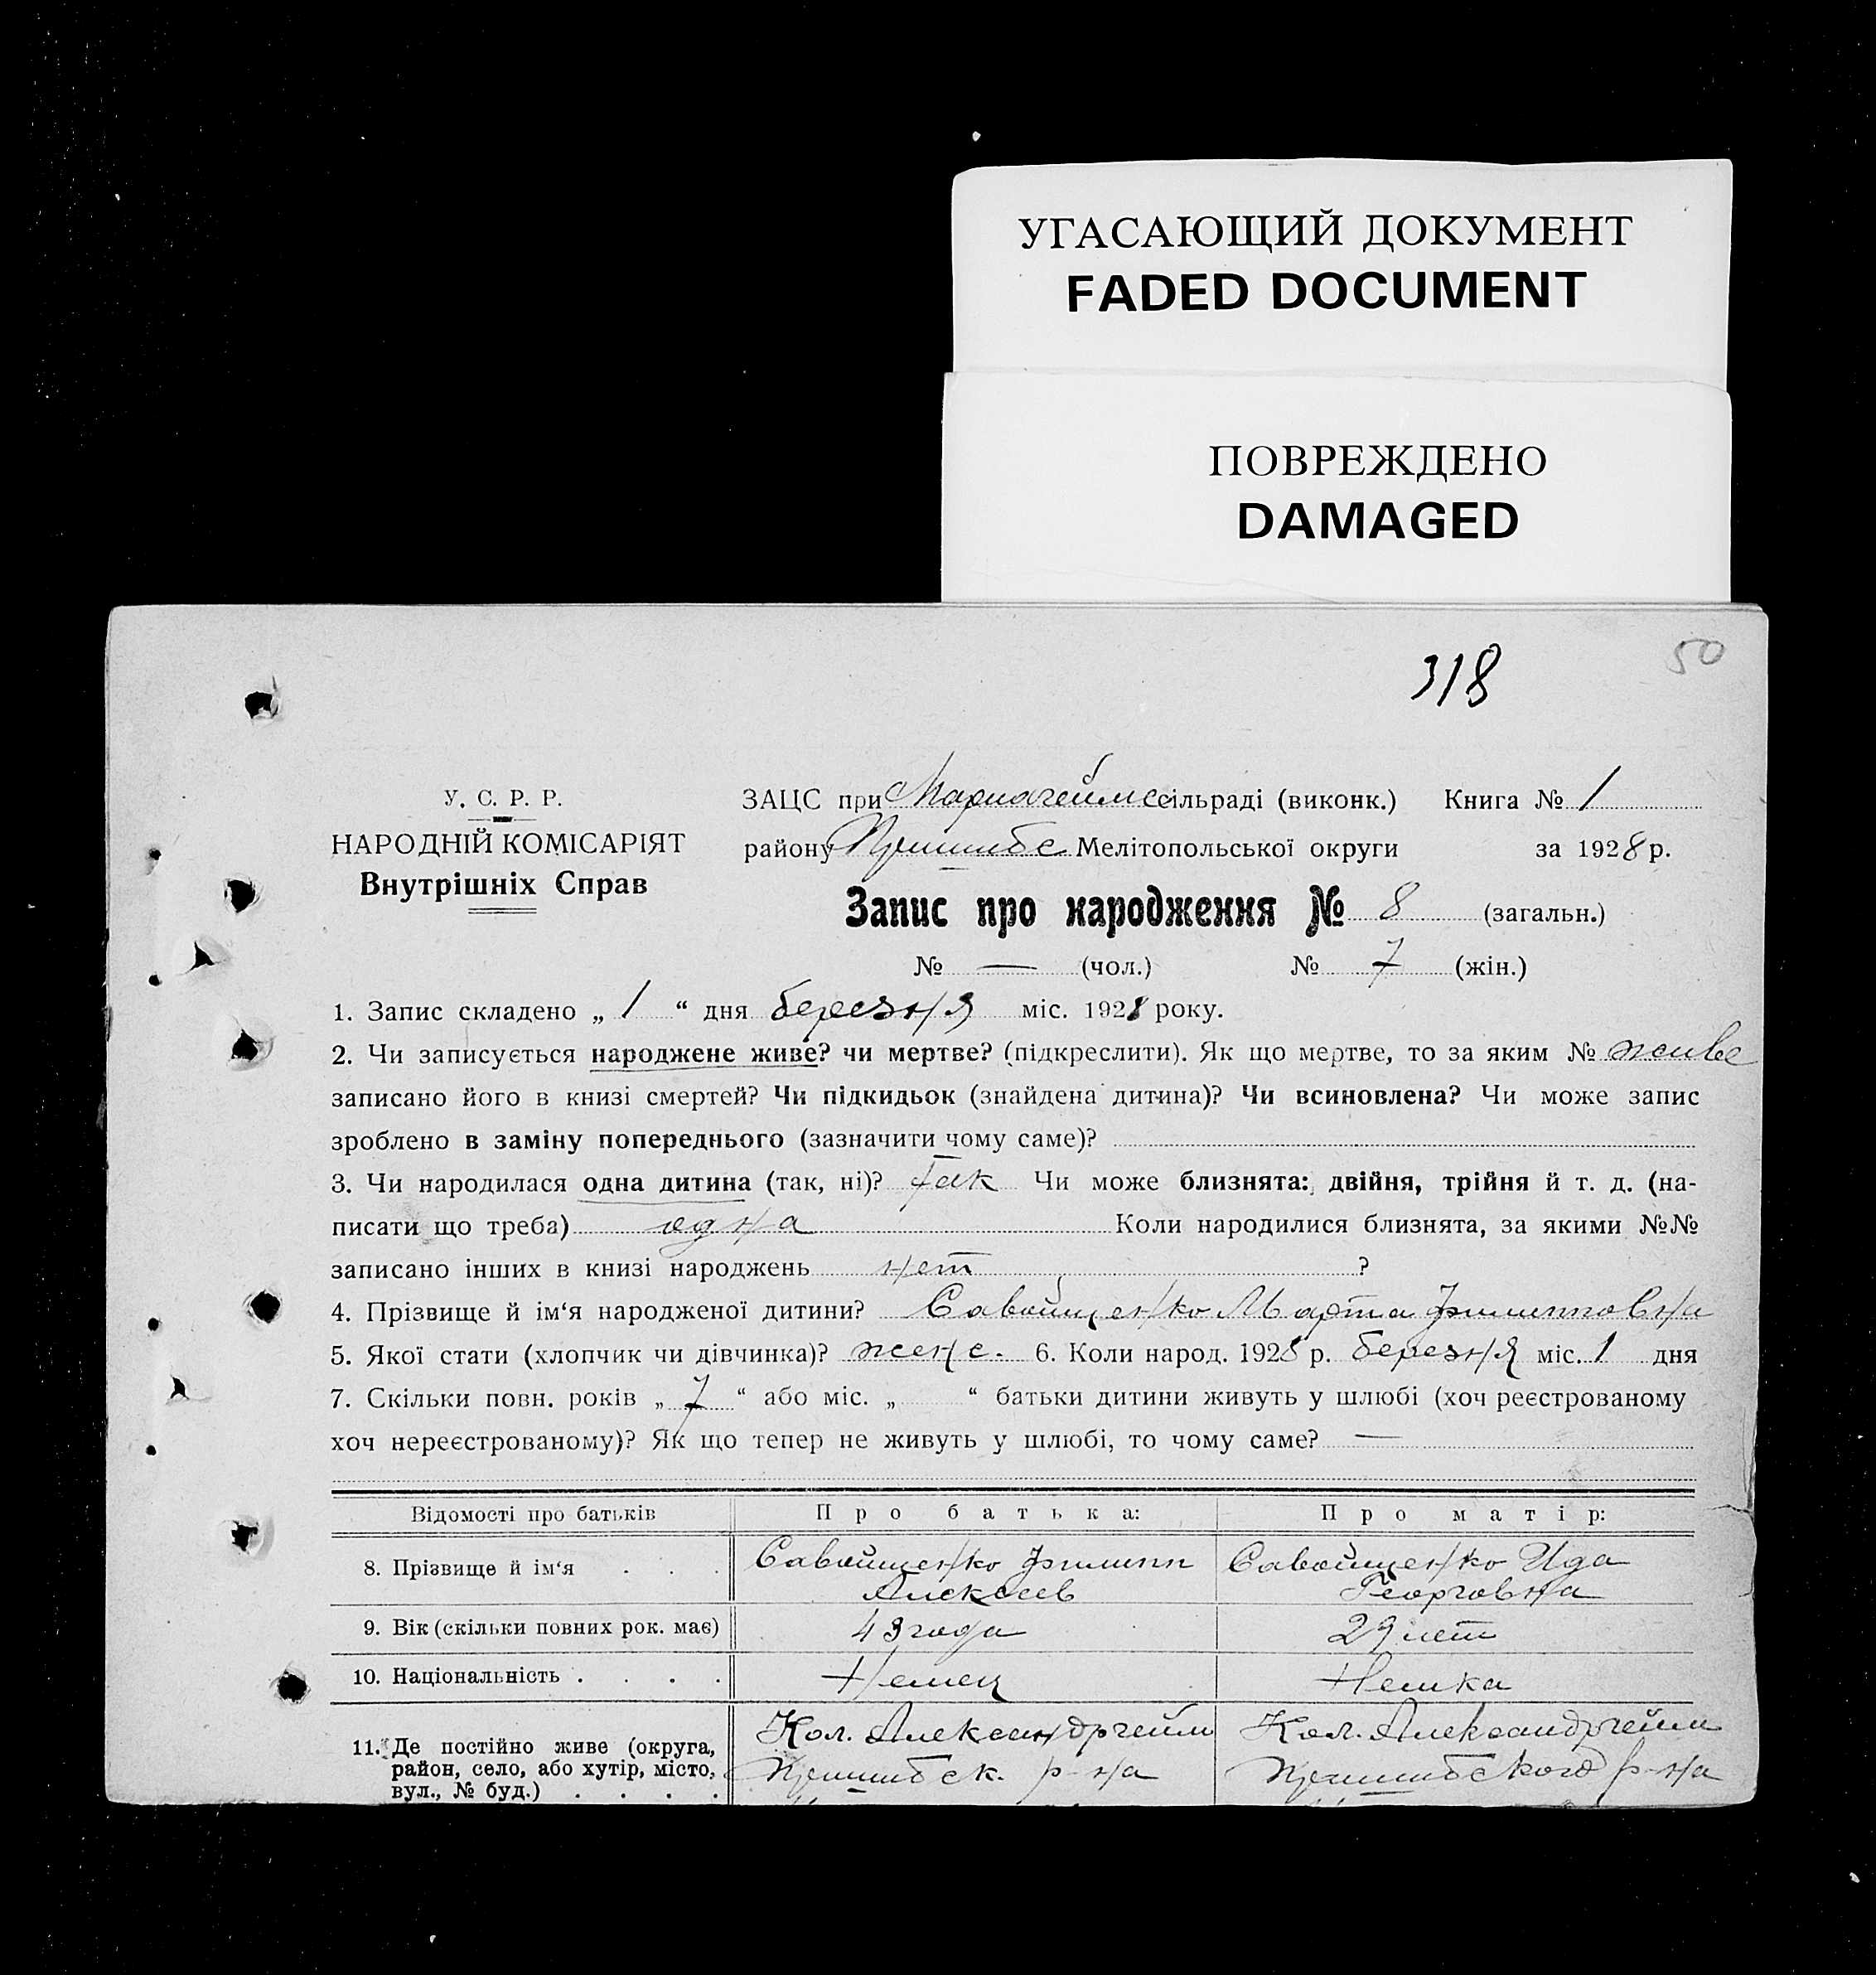 УГАСАЮЩИЙ ДОКУМЕНТ
FADED DOCUMENT
ПОВРЕЖДЕНО
DAMAGED
318
50
У. С. Р. Р.
НАРОДНІЙ КОМІСАРІЯТ
Внутрішніх Справ
ЗАЦС при Мариагеймс сільраді (виконк.) Книга № 1
району Пришибс Мелітопольської округи за 1928 р.
Запис про народження № 8 (загальн.)
№ — (чол.) № 7 (жін.)
1. Запис складено „ 1 “ дня березня міс. 1928 року.
2. Чи записується народжене живе? чи мертве? (підкреслити). Як що мертве, то за яким № живе
записано його в книзі смертей? Чи підкидьок (знайдена дитина)? Чи всиновлена? Чи може запис
зроблено в заміну попереднього (зазначити чому саме)?
3. Чи народилася одна дитина (так, ні)? так Чи може близнята: двійня, трійня й т. д. (на-
писати що треба) одна Коли народилися близнята, за якими №№
записано інших в книзі народжень нет ?
4. Прізвище й ім‘я народженої дитини? Савойщенко Марта Филипповна
5. Якої стати (хлопчик чи дівчинка)? женс. 6. Коли народ. 1928 р. березня міс. 1 дня
7. Скільки повн. років „ 7 “ або міс. „ “ батьки дитини живуть у шлюбі (хоч реєстрованому
хоч нереєстрованому)? Як що тепер не живуть у шлюбі, то чому саме? —
Відомості про батьків Про батька: Про матір:
8. Прізвище й ім‘я . . . Савойщенко Филипп Алексеев Савойщенко Ида Георговна
9. Вік (скільки повних рок. має) 43 года 29 лет
10. Національність . . . . Немец Немка
11. Де постійно живе (округа, район, село, або хутір, місто, вул., № буд.) . . . . Кол. Александргейм Пришибск. р-на Кол. Александргейм Пришибского р-на